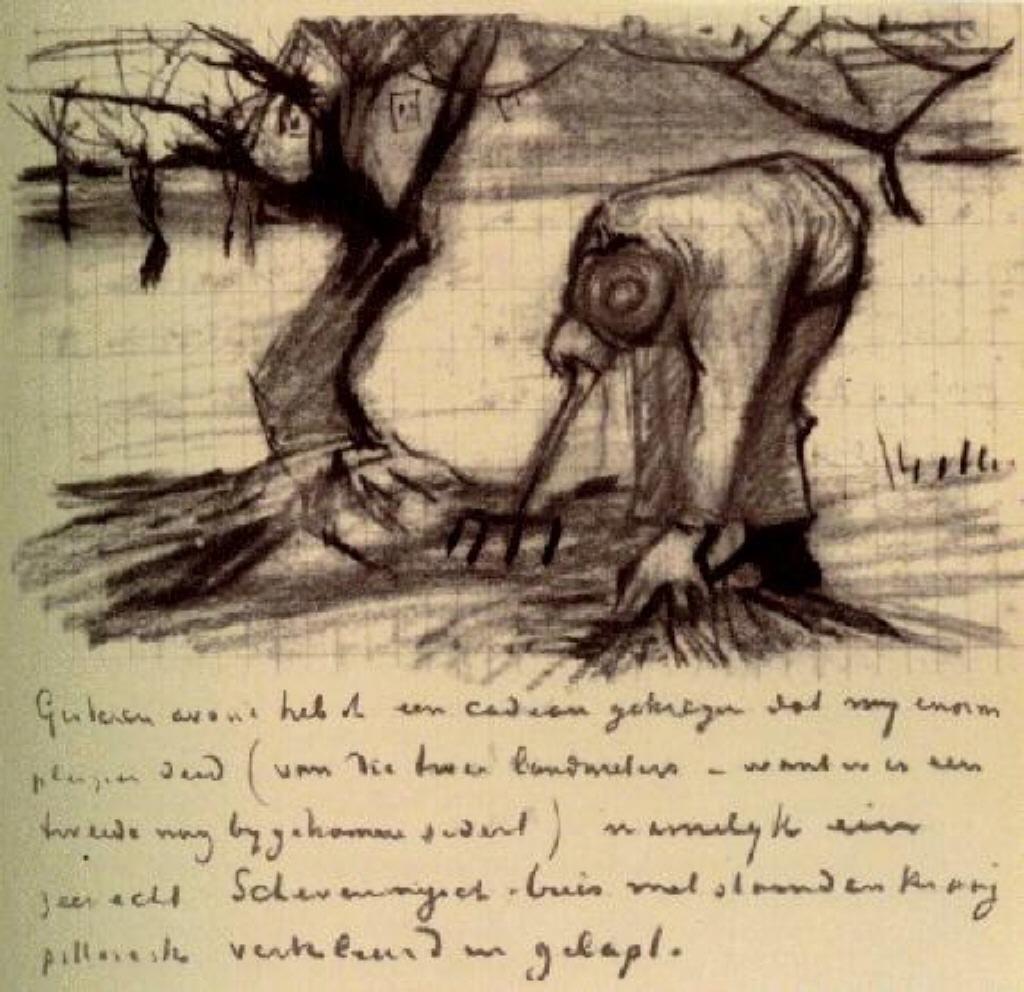 Gisteren avond heb ik een cadeau gekregen dat mij enorm
pleizier deed (van die twee landmeters – want er is een
tweede nog bygekomen sedert) namelyk een
zeer echt Scheveningsch buis met staanden kraag
pittoresk verkleurd en gelapt.